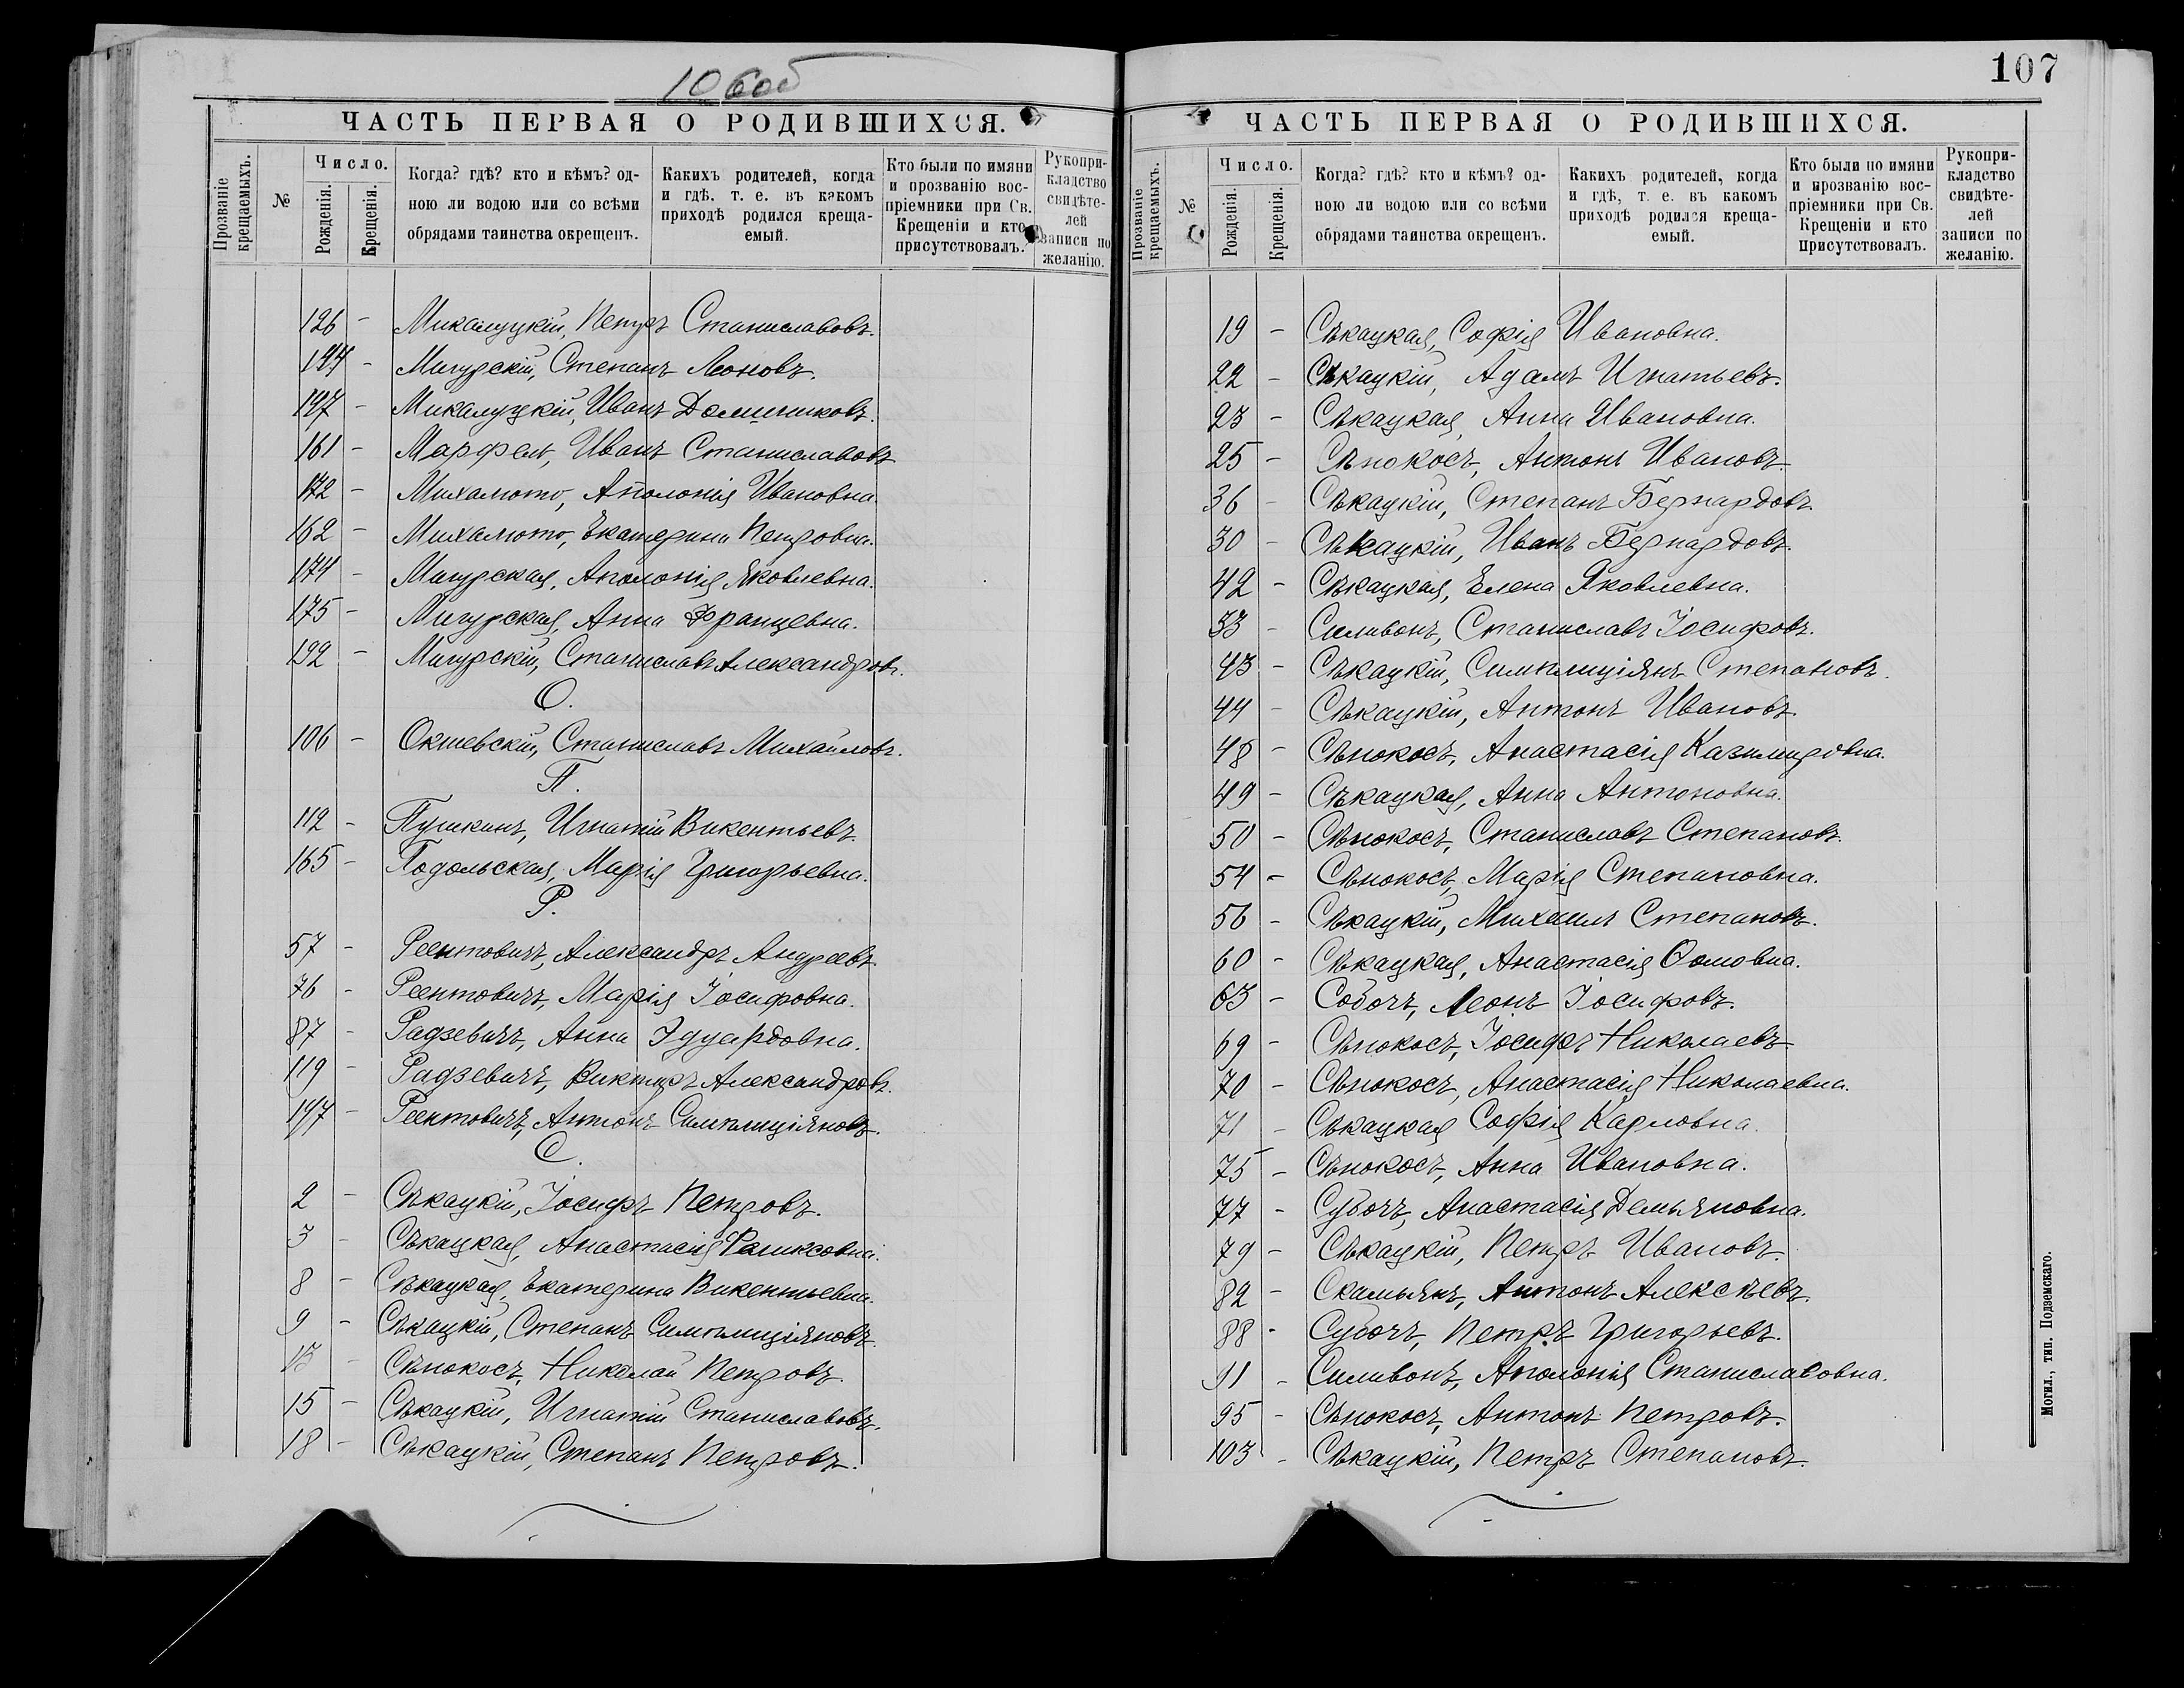 106об
ЧАСТЬ ПЕРВАЯ О РОДИВШИХСЯ.
Прозваніе крещаемыхъ.
№
Число.
Рожденія.
Крещенія.
Когда? гдѣ? кто и кѣмъ? од-
ною ли водою или со всѣми
обрядами таинства окрещенъ.
Какихъ родителей, когда
и гдѣ. т. е. въ какомъ
приходѣ родился креща-
емый.
Кто были по имяни
и прозванію вос-
пріемники при Св.
Крещеніи и кто
присутствовалъ.
Рукопри-
кладство
свидѣте-
лей
записи по
желанію.
126 - Микалуцкій, Петръ Станиславовъ.
Мигурскій, Степанъ Леоновъ.
Микалуцкій, Иванъ Доминиковъ.
161 - Марфель, Иванъ Станиславовъ
172 - Михалюто, Аполонія Ивановна.
162 - Михалюто, Екатерина Петровна.
174 - Мигурская, Аполонія Яковлевна.
175 - Мигурская, Анна Францевна.
192 - Мигурскій, Станиславъ Александровъ.
О.
106 - Окшевскій, Станиславъ Михайловъ.
П.
112 - Пушкинъ, Игнатій Викентьевъ.
165 - Подольская, Марія Григорьевна.
Р.
57 - Реентовичъ, Александръ Андреевъ.
76 - Реентовичъ, Марія Іосифовна.
87 - Радзевичъ, Анна Эдуардовна.
119 - Радзевичъ, Викторъ Александровъ.
147 - Реентовичъ, Антонъ Симплиціяновъ.
С.
2 - Сѣкацкій, Іосифъ Петровъ.
3 - Сѣкацкая, Анастасія Феликсовна.
8 - Сѣкацкая, Екатерина Викентьевна.
9 - Сѣкацкій, Степанъ Симплиціяновъ.
13 - Сѣнокосъ, Николай Петровъ.
15 - Сѣкацкій, Игнатій Станиславовъ.
18 - Сѣкацкій, Степанъ Петровъ.
107
ЧАСТЬ ПЕРВАЯ О РОДИВШИХСЯ.
Прозваніе крещаемыхъ.
№
Число.
Рожденія.
Крещенія.
Когда? гдѣ? кто и кѣмъ? од-
ною ли водою или со всѣми
обрядами таинства окрещенъ.
Какихъ родителей, когда
и гдѣ, т. е. въ какомъ
приходѣ родился креща-
емый.
Кто были по имяни
и прозванію вос-
пріемники при Св.
Крещеніи и кто
присутствовалъ.
Рукопри-
кладство
свидѣте-
лей
записи по
желанію.
19 - Сѣкацкая, Софія Ивановна.
22 - Сѣкацкій, Адамъ Игнатьевъ.
23 - Сѣкацкая, Анна Ивановна.
25 - Сѣнокосъ, Антонъ Ивановъ
36 - Сѣкацкій, Степанъ Бернардовъ.
30 - Сѣкацкій, Иванъ Бернардовъ.
42 - Сѣкацкая, Елена Яковлевна.
33 - Силивонъ, Станиславъ Іосифовъ.
43 - Сѣкацкій, Симплиціянъ Степановъ.
44 - Сѣкацкій, Антонъ Ивановъ.
48 - Сѣнокосъ, Анастасія Казимировна.
49 - Сѣкацкая, Анна Антоновна.
50 - Сѣнокосъ, Станиславъ Степановъ.
54 - Сѣнокосъ, Марія Степановна.
56 - Сѣкацкій, Михаилъ Степановъ.
60 - Сѣкацкая, Анастасія Ѳомовна.
63 - Собочъ, Леонъ Іосифовъ.
69 - Сѣнокосъ, Іосифъ Николаевъ.
70 - Сѣнокосъ, Анастасія Николаевна.
71 - Сѣкацкая Софія Карловна.
75 - Сѣнокосъ, Анна Ивановна.
77 - Субочъ, Анастасія Демьяновна.
79 - Сѣкацкій, Петръ Ивановъ.
82 - Скамьянъ, Антонъ Алексѣевъ.
88 - Субочъ, Петръ Григорьевъ.
91 - Силивонъ, Аполонія Станиславовна.
95 - Сѣнокосъ, Антонъ Петровъ.
103 - Сѣкацкій, Петръ Степановъ.
Могил., тип. Подземскаго.